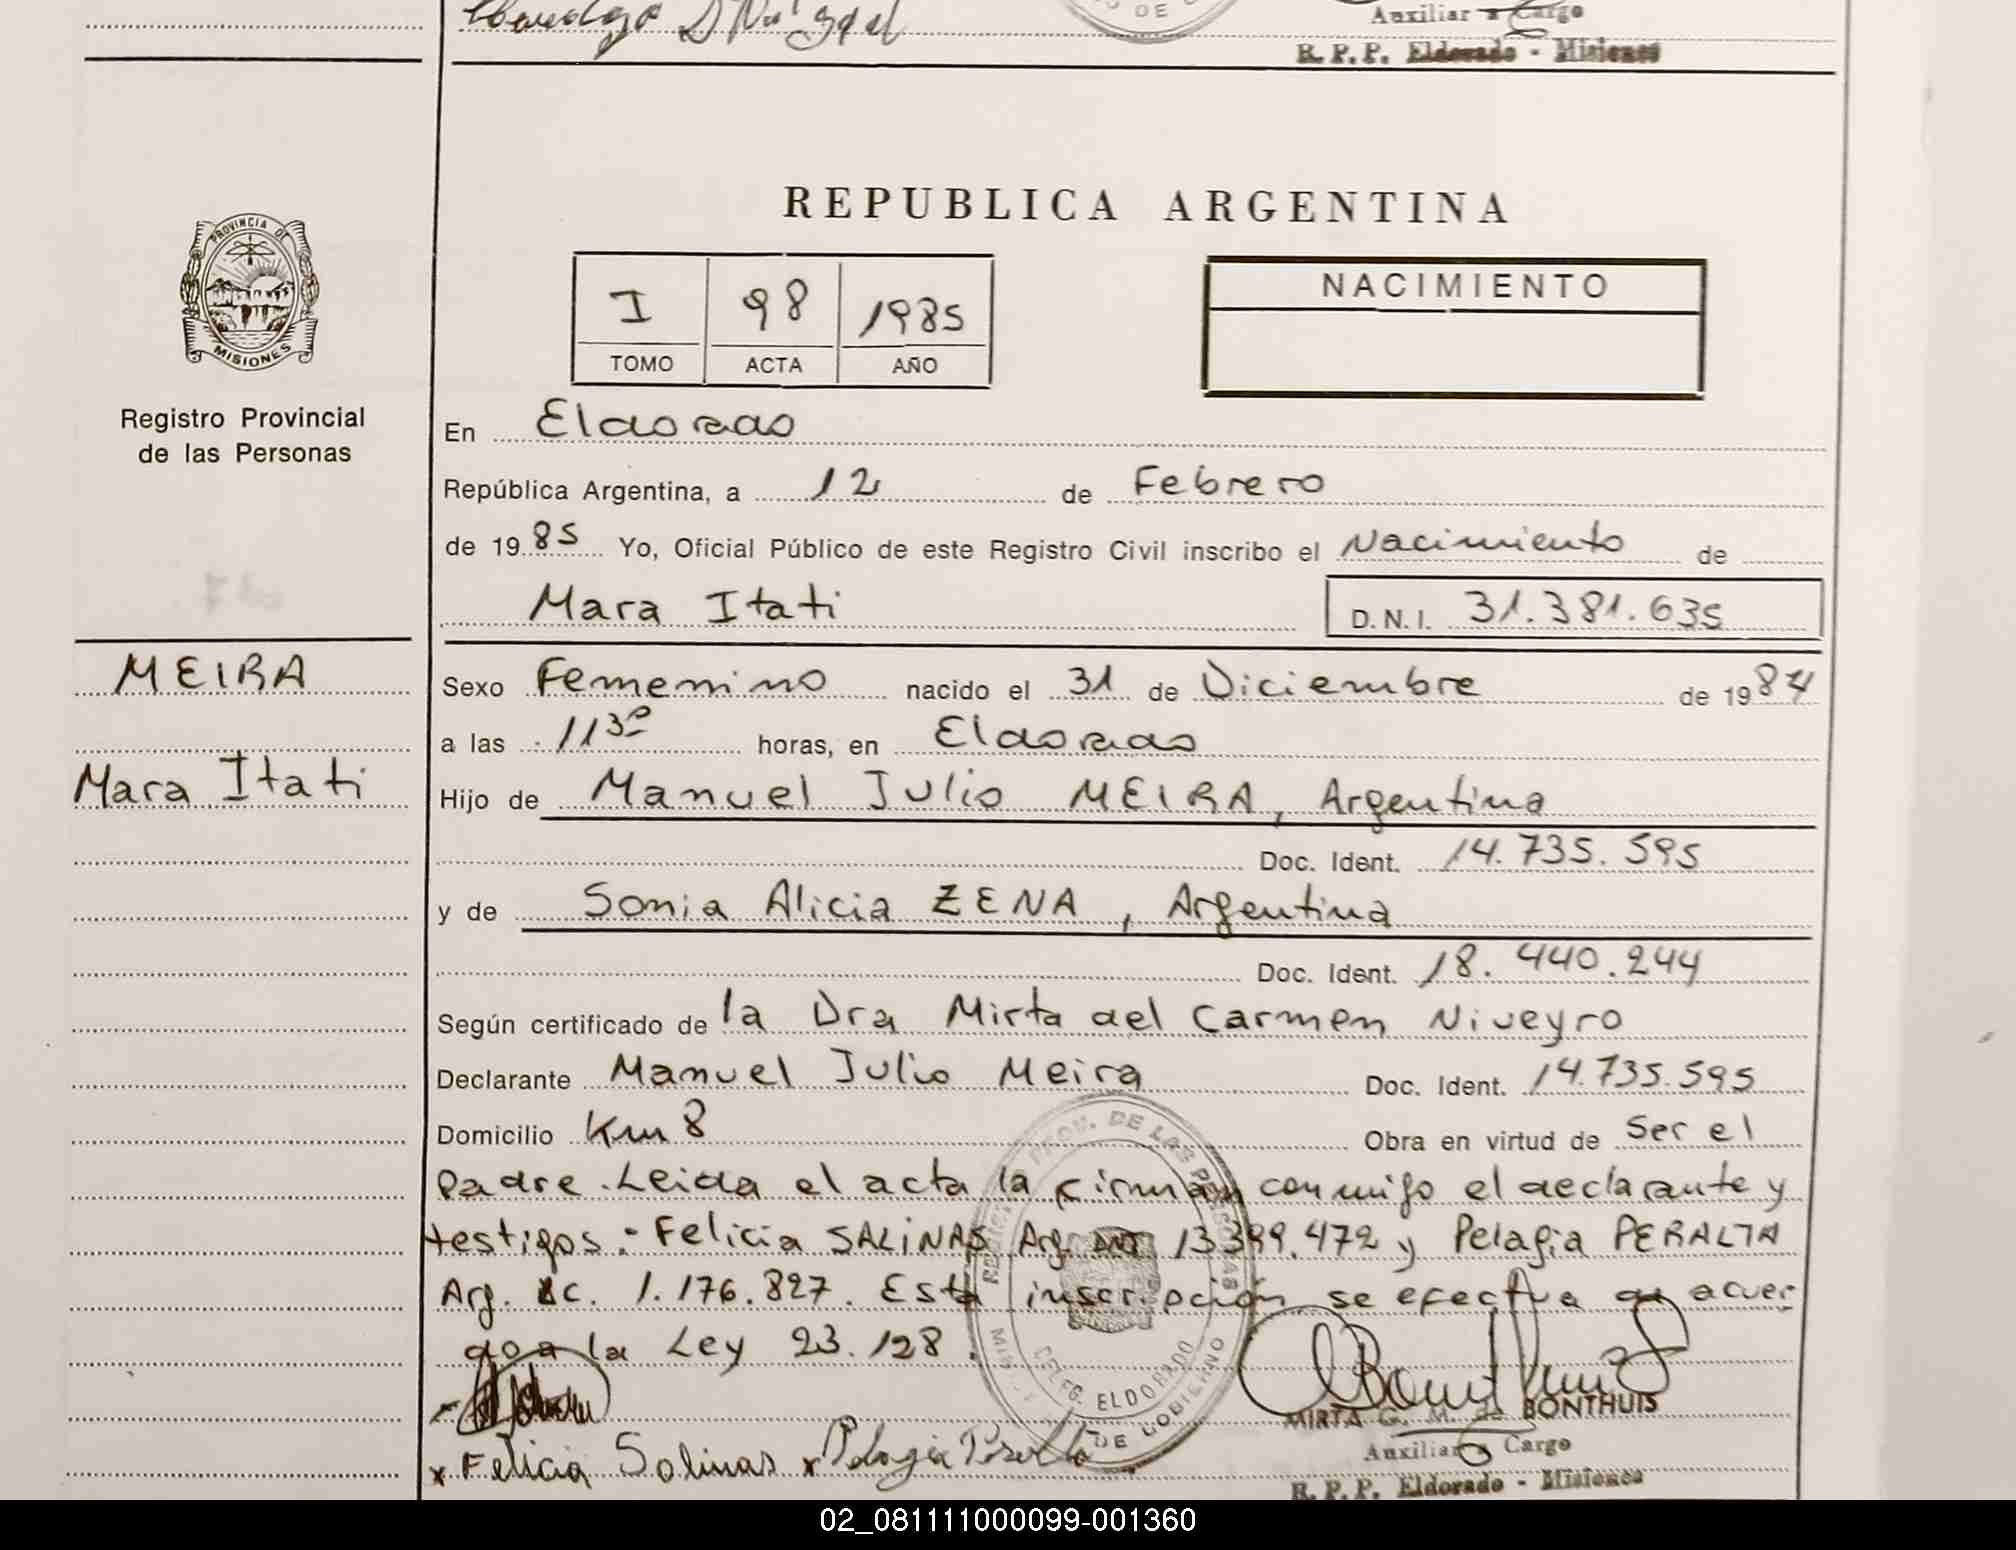 Auxiliar a Cargo
R. P. P. Eldorado - Misiones
REPUBLICA ARGENTINA
PROVINCIA DE
MISIONES
Registro Provincial
de las Personas
I 98 1985
TOMO ACTA AÑO
NACIMIENTO
En Eldorado
República Argentina, a 12 de Febrero
de 1985 Yo, Oficial Público de este Registro Civil inscribo el Nacimiento de
Mara Itati D.N.I. 31.381.635
MEIRA
Mara Itati
Sexo Femenino nacido el 31 de Diciembre de 1984
a las 1130 horas, en Eldorado
Hijo de Manuel Julio MEIRA, Argentina
Doc. Ident. 14.735.595
y de Sonia Alicia ZENA, Argentina
Doc. Ident. 18.440.244
Según certificado de la Dra Mirta del Carmen Niveyro
Declarante Manuel Julio Meira Doc. Ident. 14.735.595
Domicilio Km 8 Obra en virtud de Ser el
Padre. Leida el acta la firman conmigo el declarante y
testigos:- Felicia SALINAS Arg. 13.399.472 y Pelagia PERALTA
Arg. LC. 1.176.827. Esta inscripción se efectua de acuer
do a la Ley 23.128.
REGISTRO PROV. DE LAS PERSONAS
DELEG. ELDORADO
DE GOBIERNO
MIRTA G. M. de BONTHUIS
Auxiliar a Cargo
R. P. P. Eldorado - Misiones
x Felicia Salinas x Pelagia Peralta
02_081111000099-001360